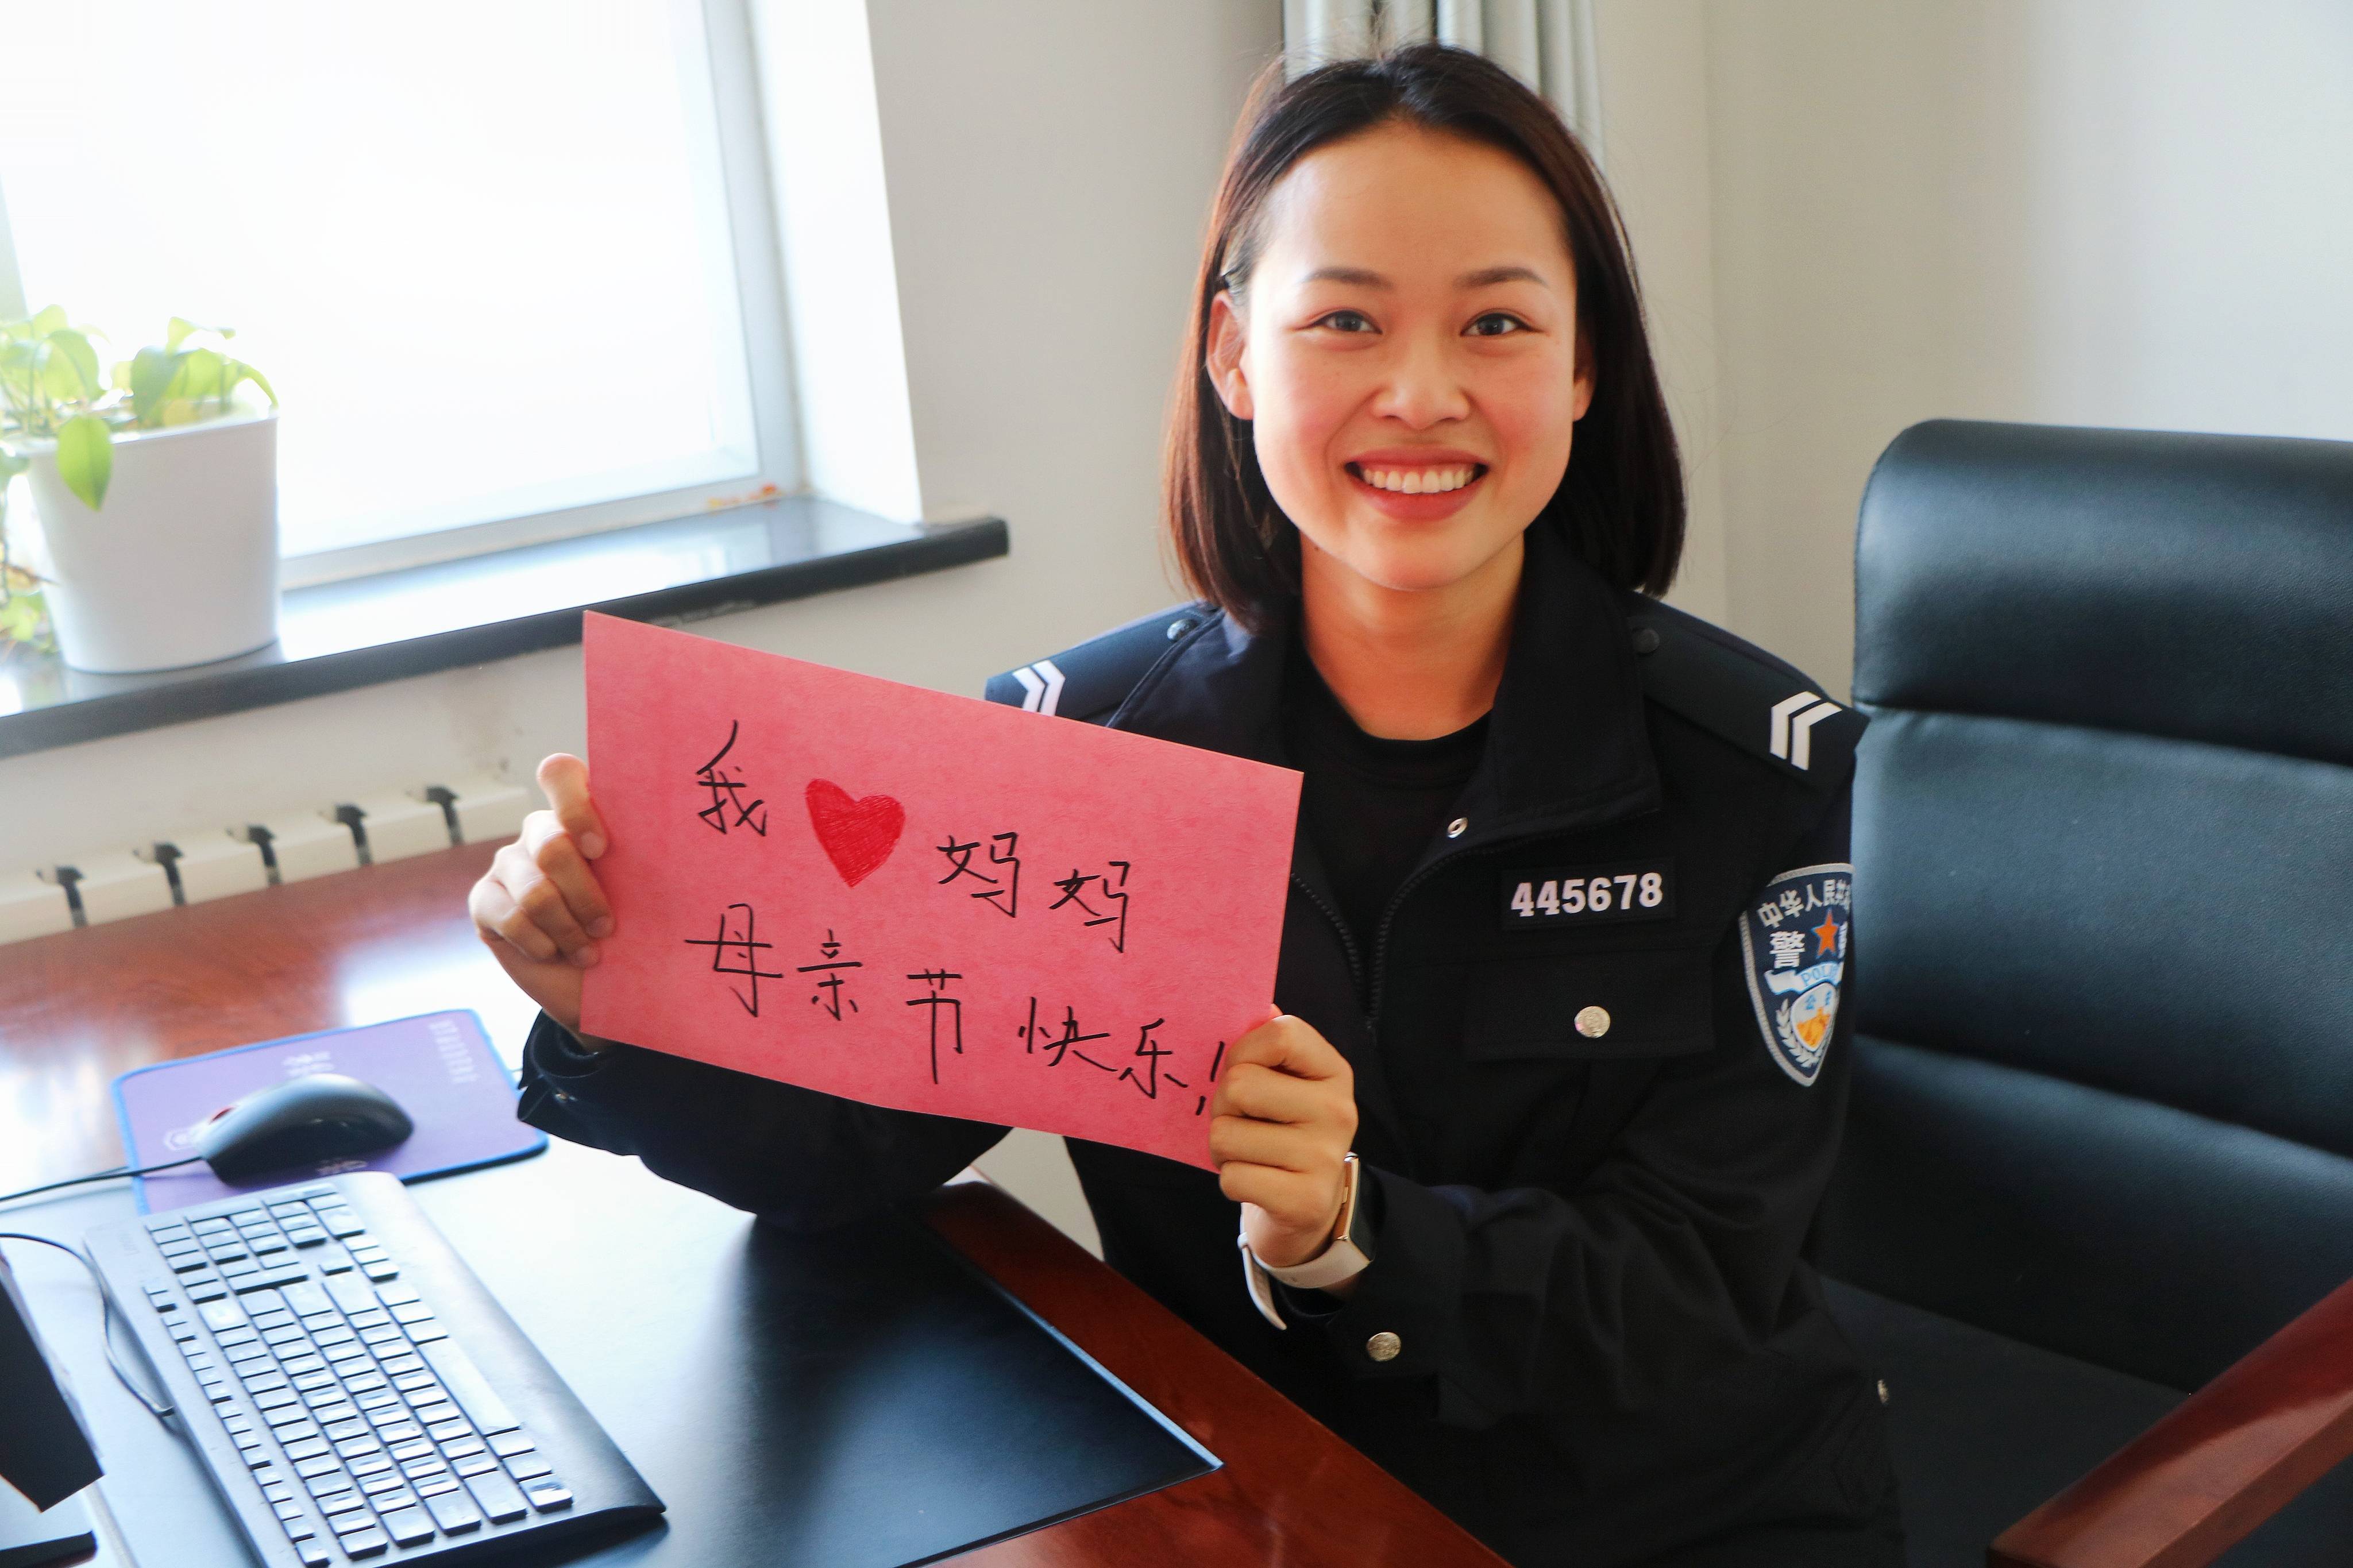 我❤妈妈
母亲节快乐!
445678
中华人民共
警
POLI